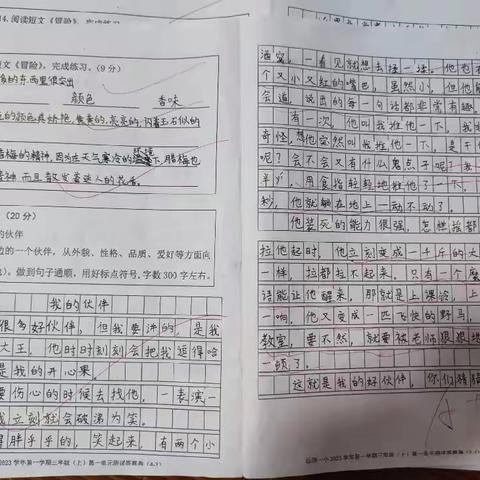 14. 阅读短文《冒险》，完成练习。
短文《冒险》，完成练习。（9 分）
的东西里很突出
颜色 香味
的颜色真娇艳，黄黄的，亮亮的，闪着玉石似的
腊梅的精神，因为在天气寒冷的环境下，腊梅也
精神，而且散发着迷人的花香。
（20 分）
的伙伴
边的一个伙伴，从外貌、性格、品质、爱好等方面向
。做到句子通顺，用好标点符号，字数 300 字左右。
我的伙伴
很多好伙伴，但我要讲的，是我
大王，他时时刻刻会把我逗得哈
是我的开心果。
要伤心的时候去找他，一表演一
我立刻就会破涕为笑。
得胖乎乎的，笑起来，有两个小
2023 学年第一学期三年级（上）第一单元测试答题卷
酒窝，一看见就想去揉一揉。他也有
个又小又红的嘴巴，虽然小，但他能
会道，说出的每一句话都非常有趣
有一次，他叫我推他一下，我
奇怪，想他突然叫我推他一下，是干
呢？会不会又有什么鬼点子呢？我
半，用食指轻轻地推他了一下，
秒，他就躺在地上一动不动了。
他装死的能力很强，怎样拉都
拉他起时，他立刻变成一千斤的大
一样，拉都拉不起来，只有一个魔
语能让他醒来，那就是上课铃，上
一响，他又变成一匹飞快的野马，
教室，要不然，就要被老师狠狠地
一顿了。
这就是我的好伙伴，你们猜猜
2023 学年第一学期三年级（上）第一单元测试答题卷